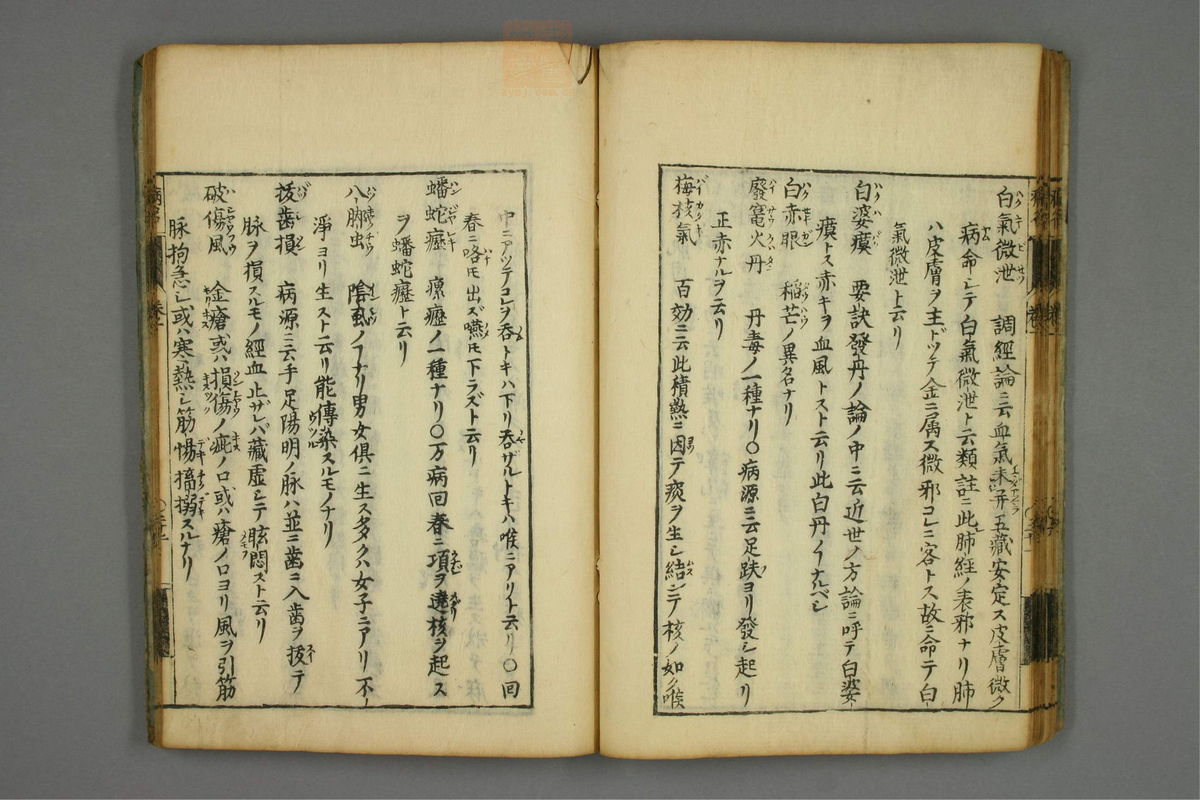 白氣微泄 調經論ニ云血氣未并五藏安定ス皮膚微ク
病命シテ白氣微泄ト云類註ニ此肺経ノ表邪ナリ肺
ハ皮膚ヲ主ドツテ金ニ属ス微邪コレニ客トス故ニ命テ白
氣微泄ト云リ
白婆瘼 要訣發丹ノ論ノ中ニ云近世ノ方論ニ呼テ白婆
瘼トス赤キヲ血風トスト云リ此白丹ノ ナルベシ
白赤眼 稲芒ノ異名ナリ
廢竃火丹 丹毒ノ一種ナリ〇病源ニ云足趺ヨリ發シ起リ
正赤ナルヲ云リ
梅核氣 百効ニ云此積熱ニ因テ痰ヲ生シ結シテ核ノ如ク喉
中ニアツテコレヲ呑トキハ下リ呑ザルトキハ喉ニアリト云リ〇回
春ニ咯モ出ズ嚥モ下ラズト云リ
蟠蛇癧 瘰癧ノ一種ナリ〇万病回春ニ項ヲ遶核ヲ起ス
ヲ蟠蛇癧ト云リ
八 虫 陰虱ノ ナリ男女俱ニ生ス多クハ女子ニアリ不
淨ヨリ生スト云リ能傳染スルモノナリ
抜歯損 病源ニ云手足陽明ノ脉ハ並ニ歯ニ入歯ヲ抜テ
脉ヲ損スルモノ經血止ザレバ藏虚シテ眩悶ズト云リ
破傷風 金瘡或ハ損傷ノ疵ノ口或ハ瘡ノ口ヨリ風ヲ引筋
脉拘急シ或ハ寒熱シ筋惕搐搦スルナリ